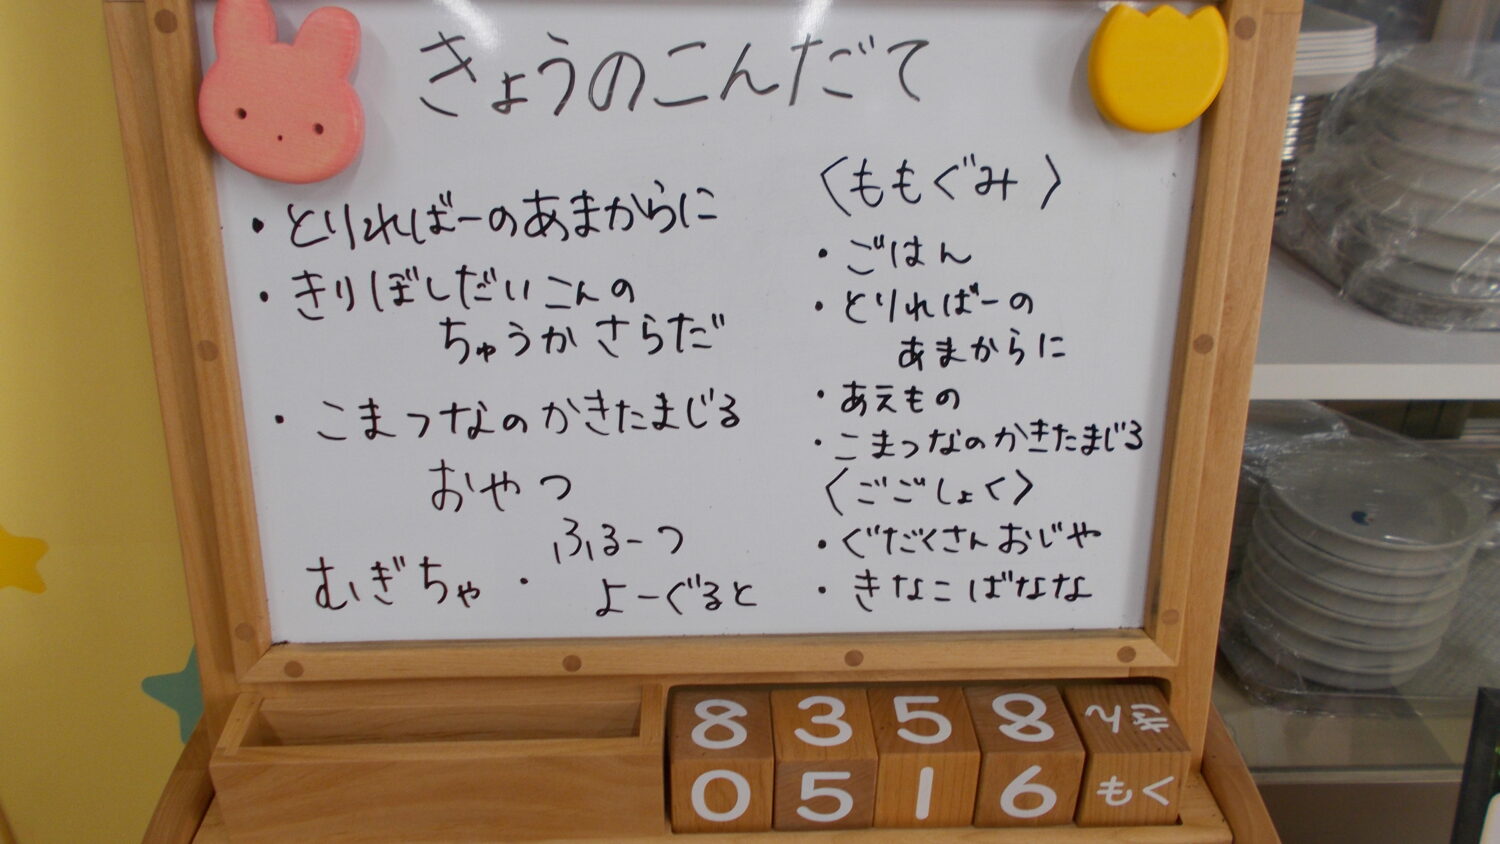 きょうのこんだて
・とりればーのあまからに
・きりぼしだいこんの
ちゅうかさらだ
・こまつなのかきたまじる
おやつ
むぎちゃ・ふるーつ
よーぐると
〈ももぐみ〉
・ごはん
・とりればーの
あまからに
・あえもの
・こまつなのかきたまじる
〈ごごしょく〉
・ぐだくさんおじや
・きなこばなな
8 3 5 8 きん
0 5 1 6 もく